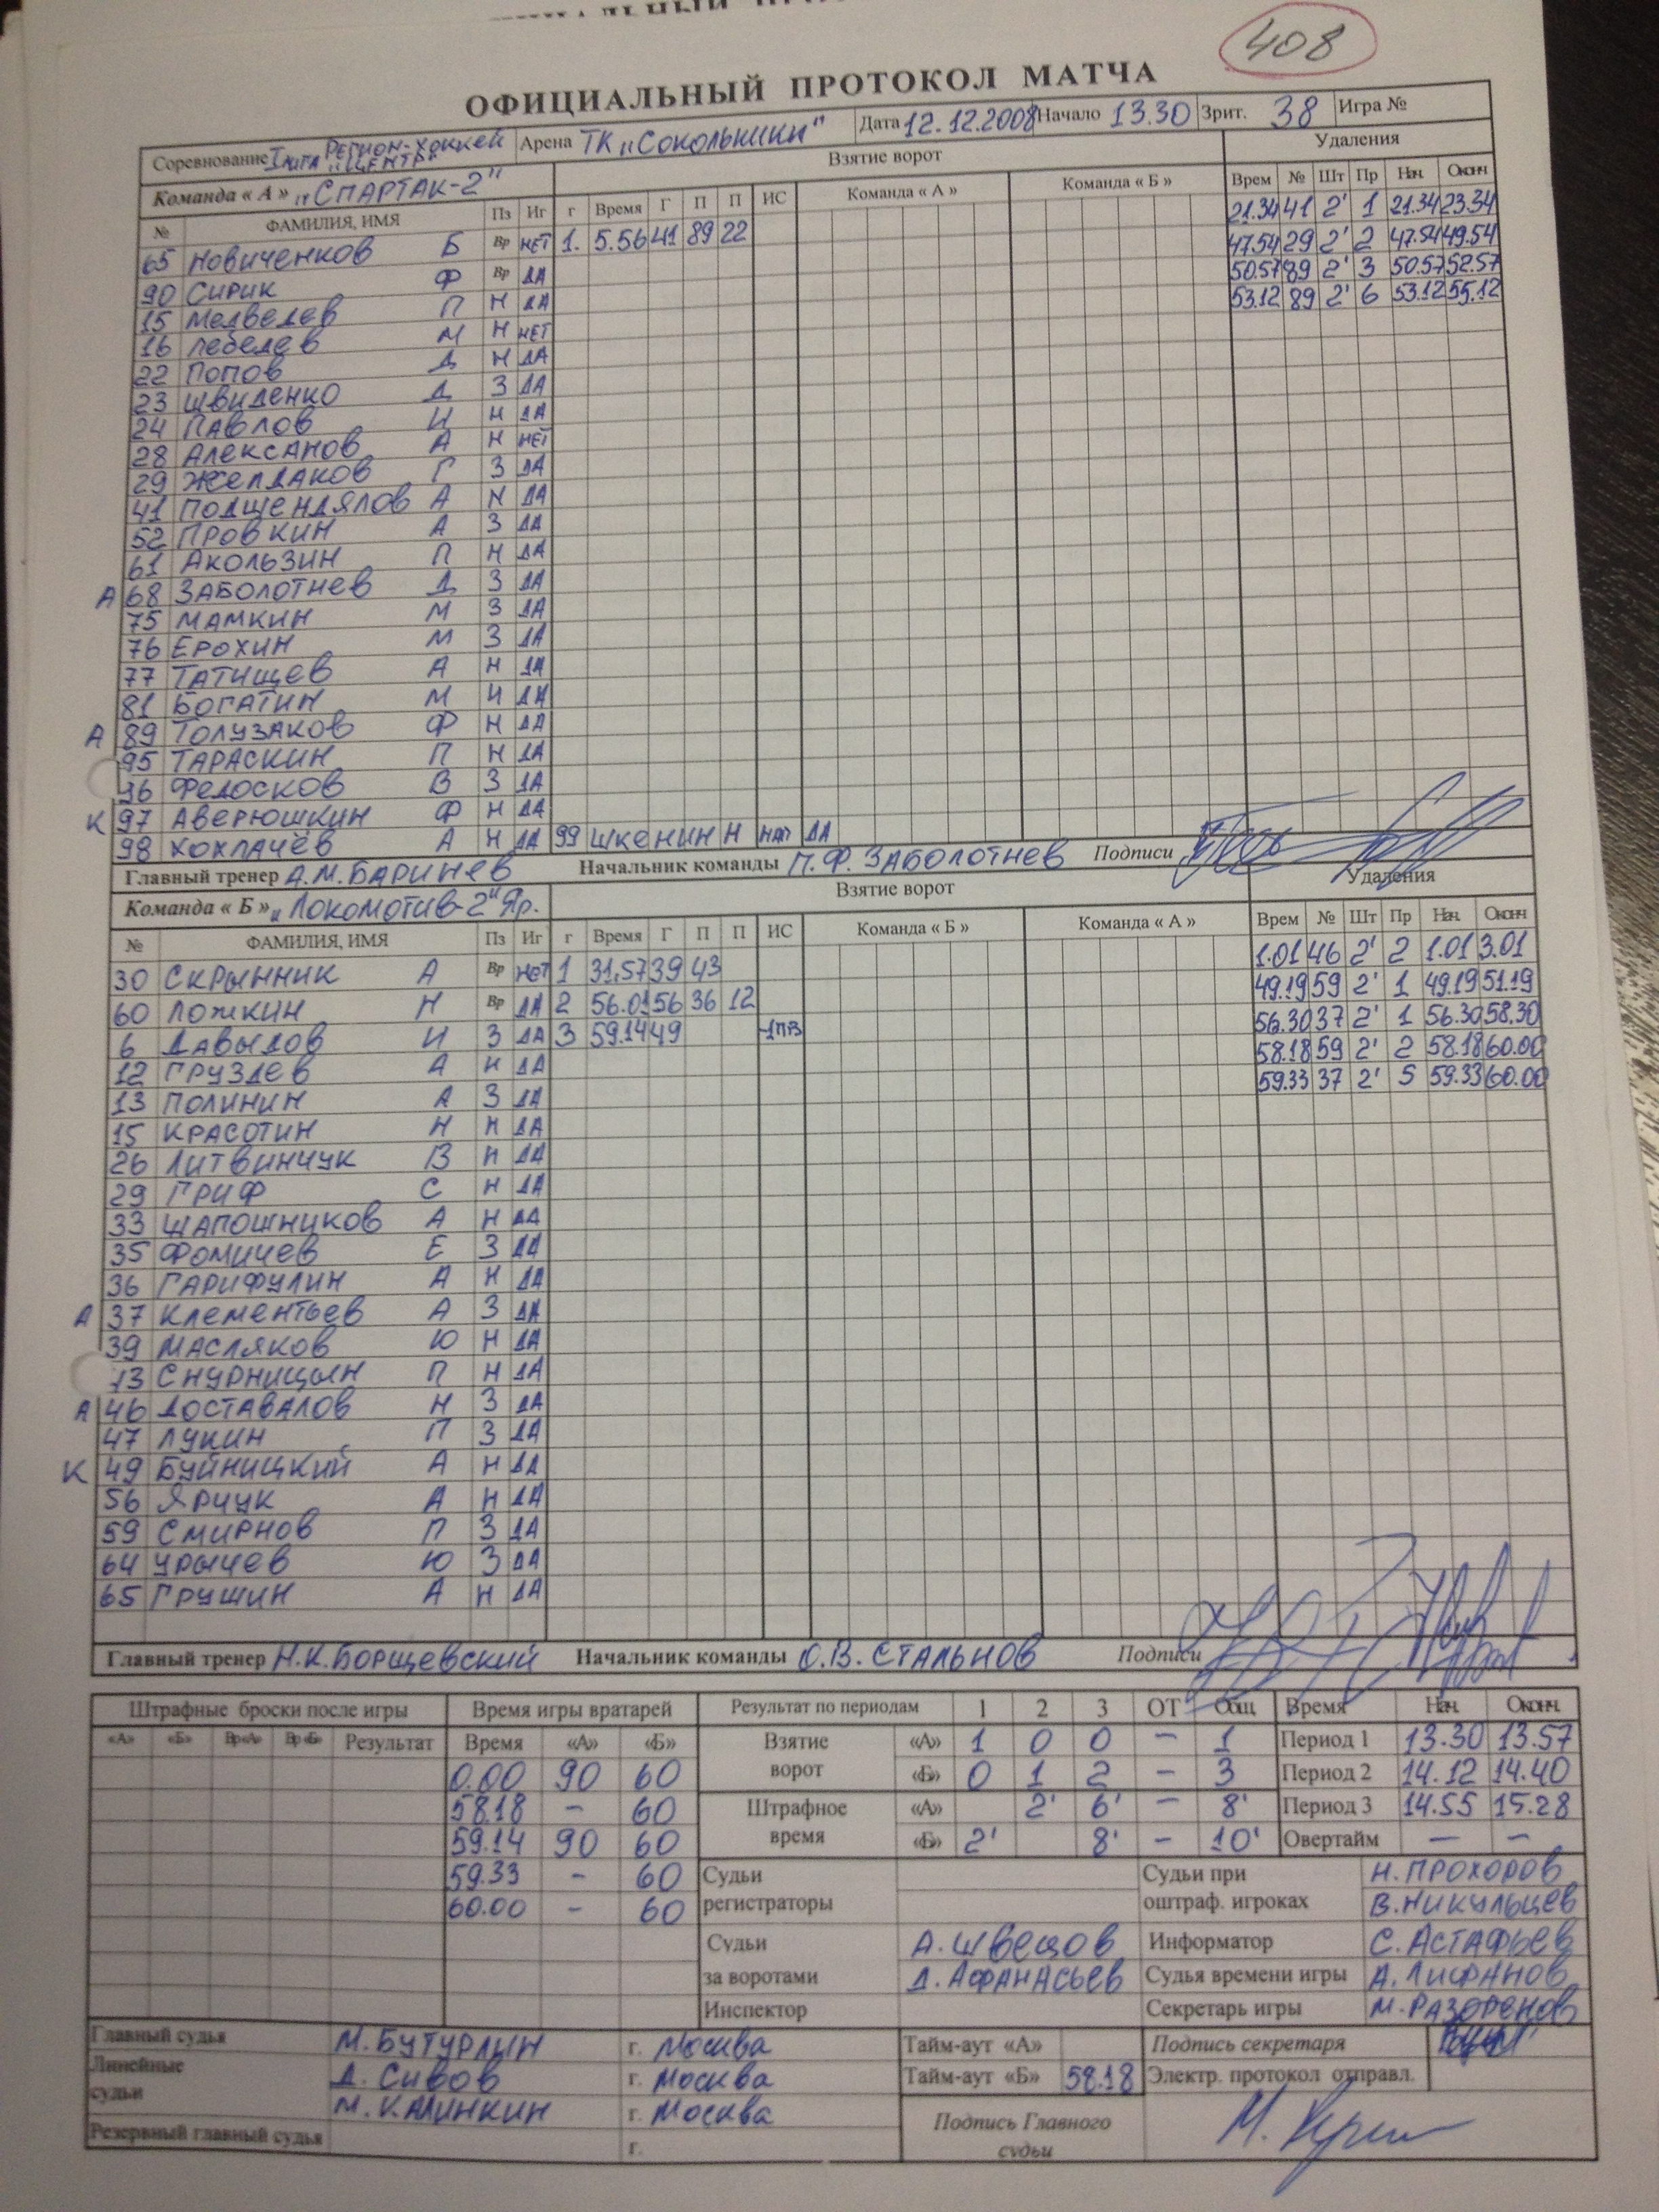 408
ОФИЦИАЛЬНЫЙ ПРОТОКОЛ МАТЧА
Соревнование I лига Регион-хоккей "Центр" Арена ТК "Сокольники" Дата 12.12.2008 Начало 13.30 Зрит. 38 Игра №
Команда « А » "Спартак-2" Взятие ворот Удаления
№ ФАМИЛИЯ, ИМЯ Пз Иг г Время Г П П ИС Команда « А » Команда « Б » Врем № Шт Пр Нач. Оконч
65 Новиченков Б Вр нет 1. 5.56 41 89 22 21.34 41 2' 1 21.34 23.34
90 Сирик Ф Вр да 47.54 29 2' 2 47.54 49.54
15 Медведев П Н да 50.57 89 2' 3 50.57 52.57
16 Лебедев М Н нет 53.12 89 2' 6 53.12 55.12
22 Попов Д Н да
23 Швиденко Д З да
24 Павлов И Н да
28 Алексанов А Н нет
29 Желдаков Г З да
41 Подшендялов А Н да
52 Провкин А З да
61 Акользин П Н да
А 68 Заболотнев Д З да
75 Мамкин М З да
76 Ерохин М З да
77 Татищев А Н да
81 Богатин М Н да
А 89 Толузаков Ф Н да
95 Тараскин П Н да
96 Федосков В З да
К 97 Аверюшкин Ф Н да
98 Хохлачёв А Н да 99 Шкенин Н нап да
Главный тренер А.М. Баринев Начальник команды П.Ф. Заболотнев Подписи
Команда « Б » "Локомотив-2" Яр. Взятие ворот Удаления
№ ФАМИЛИЯ, ИМЯ Пз Иг г Время Г П П ИС Команда « Б » Команда « А » Врем № Шт Пр Нач. Оконч
30 Скрынник А Вр нет 1 31.57 39 43 1.01 46 2' 2 1.01 3.01
60 Ложкин Н Вр да 2 56.01 56 36 12 49.19 59 2' 1 49.19 51.19
6 Давыдов И З да 3 59.14 49 -1ПВ 56.30 37 2' 1 56.30 58.30
12 Груздев А Н да 58.18 59 2' 2 58.18 60.00
13 Полинин А З да 59.33 37 2' 5 59.33 60.00
15 Красотин Н Н да
26 Литвинчук В Н да
29 Гриф С Н да
33 Шапошников А Н да
35 Фомичев Е З да
36 Гарифулин А Н да
А 37 Клементьев А З да
39 Масляков Ю Н да
43 Снурницын П Н да
А 46 Доставалов Н З да
47 Лукин П З да
К 49 Буйницкий А Н да
56 Ярчук А Н да
59 Смирнов П З да
64 Урычев Ю З да
65 Грушин А Н да
Главный тренер Н.К. Борщевский Начальник команды О.В. Стальнов Подписи
Штрафные броски после игры Время игры вратарей Результат по периодам 1 2 3 ОТ Общ Время Нач. Оконч.
«А» «Б» Вр«А» Вр«Б» Результат Время «А» «Б» Взятие ворот «А» 1 0 0 – 1 Период 1 13.30 13.57
0.00 90 60 «Б» 0 1 2 – 3 Период 2 14.12 14.40
58.18 – 60 Штрафное время «А» 2' 6' – 8' Период 3 14.55 15.28
59.14 90 60 «Б» 2' 8' – 10' Овертайм – –
59.33 – 60 Судьи регистраторы Судьи при оштраф. игроках Н. Прохоров
60.00 – 60 В. Никульцев
Судьи за воротами А. Швецов Информатор С. Астафьев
Д. Афанасьев Судья времени игры А. Лифанов
Инспектор Секретарь игры М. Разоренов
Главный судья М. Бутурлын г. Москва Тайм-аут «А» Подпись секретаря
Линейные судьи Д. Сивов г. Москва Тайм-аут «Б» 58.18 Электр. протокол отправл.
М. Калинкин г. Москва Подпись Главного судьи
Резервный главный судья г.